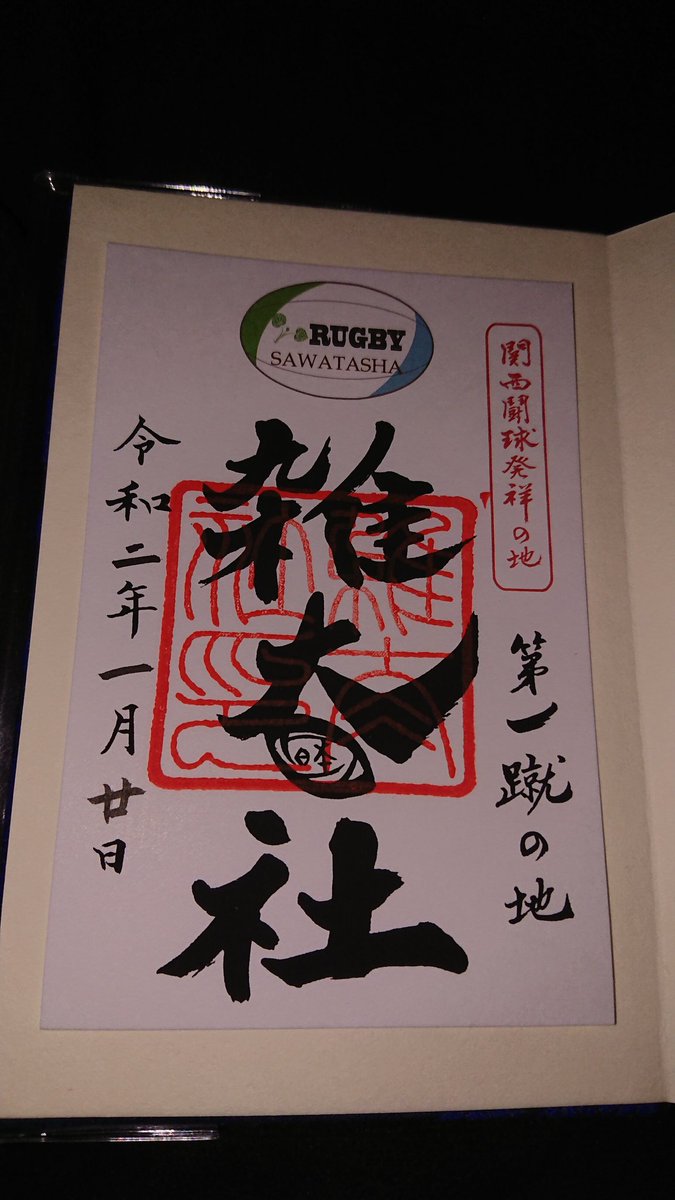 RUGBY
SAWATASHA
関西闘球発祥の地
第一蹴の地
雑太社
令和二年一月廿日